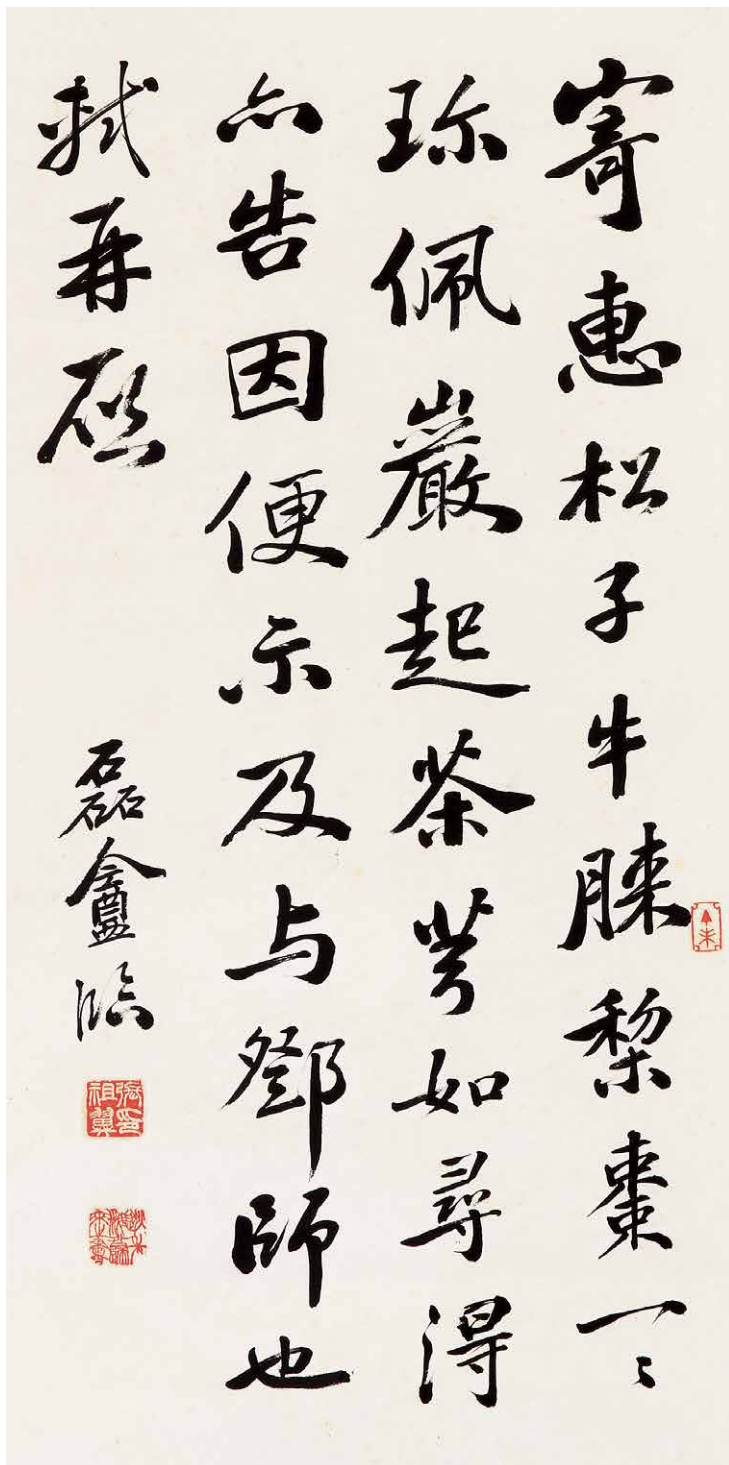 寄惠松子牛膝棃棗一〻
珎佩嚴起茶芎如尋得
亦告因便示及与鄧師也
軾再啟
磊盦臨
張祖翼印